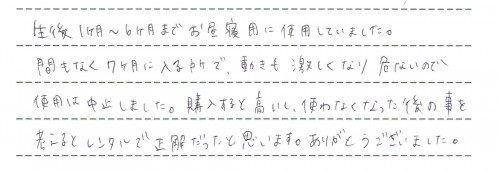 生後1ヶ月～6ヶ月までお昼寝用に使用していました。
間もなく7ヶ月に入る所で、動きも激しくなり危ないので
使用は中止しました。購入すると高いし、使わなくなった後の事を
考えるとレンタルで正解だったと思います。ありがとうございました。